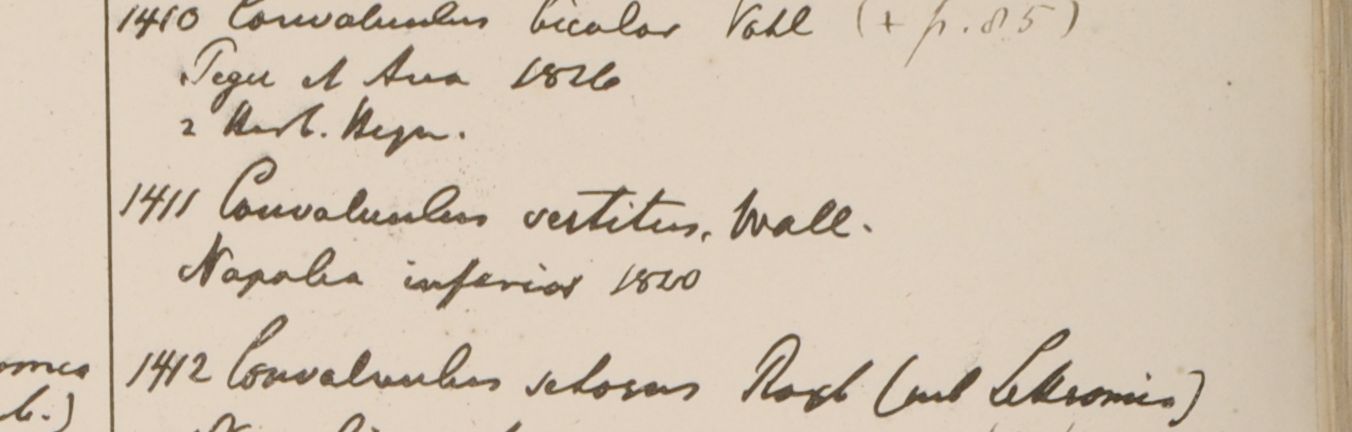 1410 Convolvulus bicolor Vahl (+ p. 85)
Segu et Ava 1826
2 Herb. Heyn.
1411 Convolvulus vestitus, Wall.
Napalia inferior 1820
omea
1412 Convolvulus setosus Roxb (sub Lettsomia)
b.)